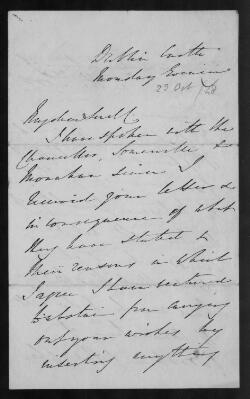 Dublin Castle
Monday Evening
23 Oct /48
My dear
I have spoken with the
Chancellor, Somerville &
Monahan since I
received your letter &
in consequence of what
they have stated &
their reasons in which
I agree I have ventured
to abstain from carrying
out your wishes by
inserting anything